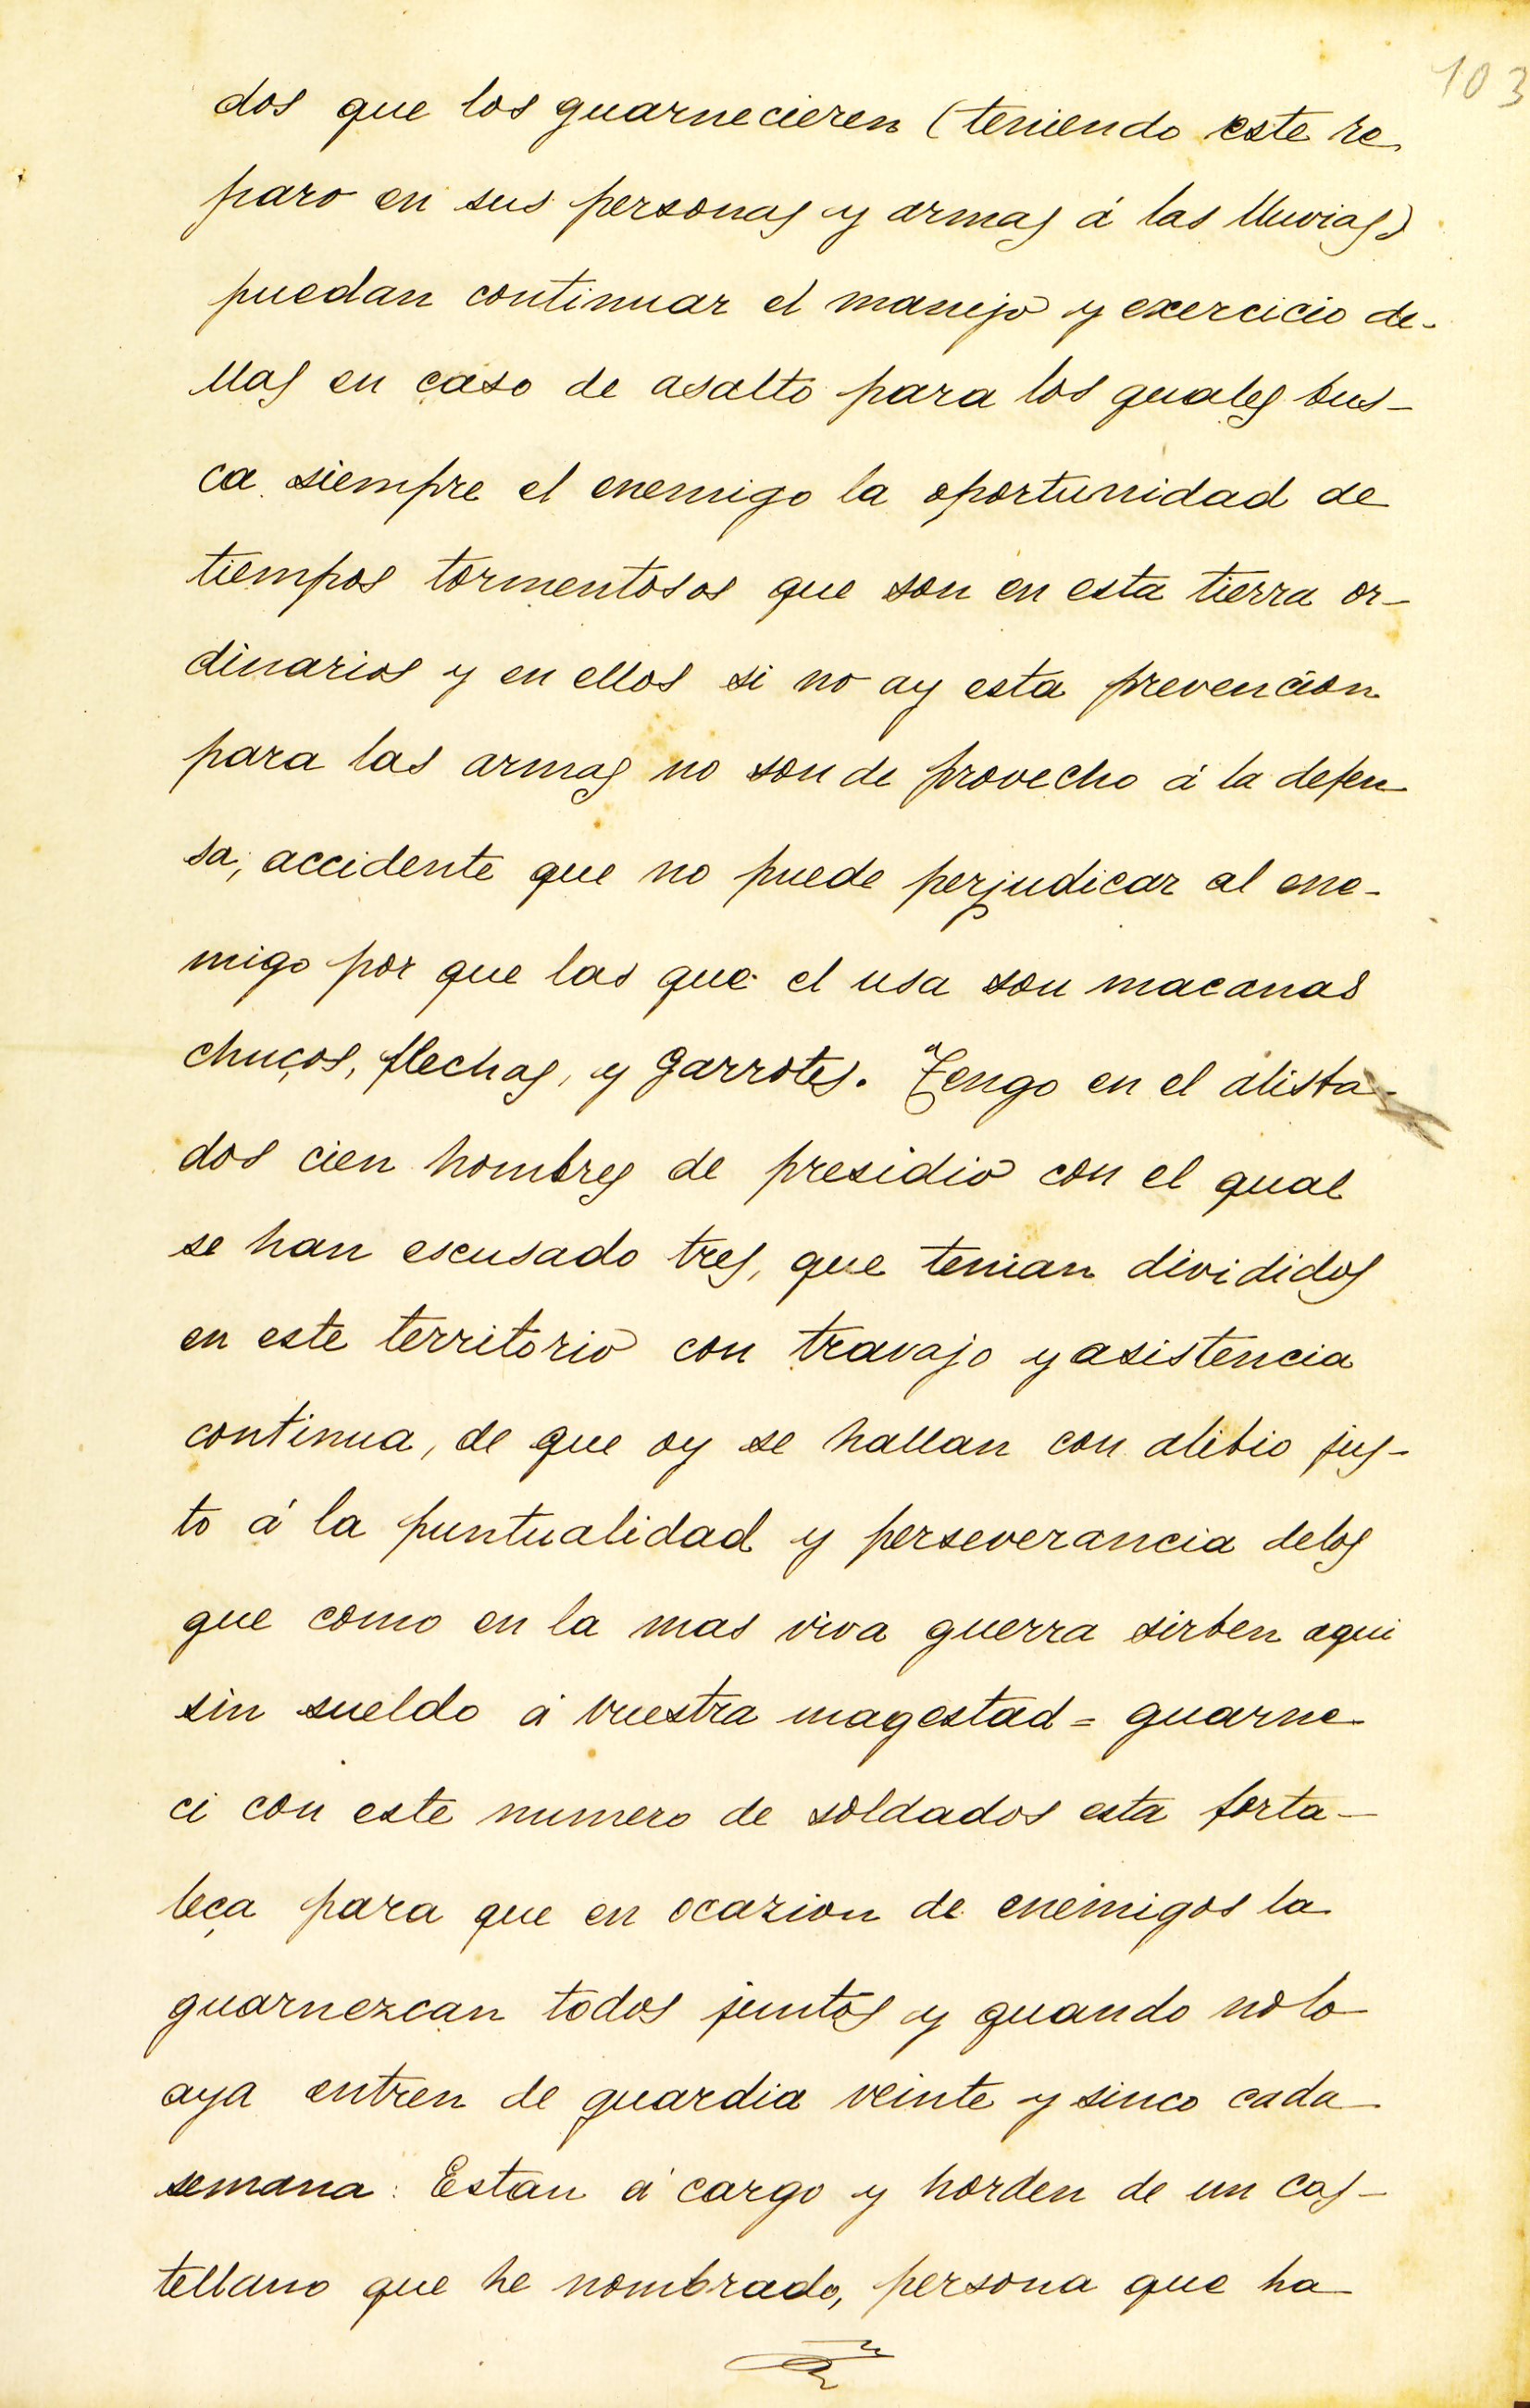 103
dos que los guarnecieren (teniendo este re
paro en sus personas y armas á las lluvias)
puedan continuar el manejo y exercicio de-
llas en caso de asalto para los quales bus-
ca siempre el enemigo la oportunidad de
tiempos tormentosos que son en esta tierra or-
dinarios y en ellos si no ay esta prevencion
para las armas no son de provecho á la defen
sa, accidente que no puede perjudicar al ene-
migo por que las que el usa son macanas
chuços, flechas, y garrotes. Tengo en el alista-
dos cien hombres de presidio con el qual
se han escusado tres, que tenian divididos
en este territorio con travajo y asistencia
continua, de que oy se hallan con alibio jus-
to á la puntualidad y perseverancia delos
que como en la mas viva guerra sirben aqui
sin sueldo á vuestra magestad = guarne
ci con este numero de soldados esta forta-
leça para que en ocazion de enemigos la
guarnezcan todos juntos y quando no lo
aya entren de guardia veinte y sinco cada
semana: Estan á cargo y horden de un cas-
tellano que he nombrado, persona que ha